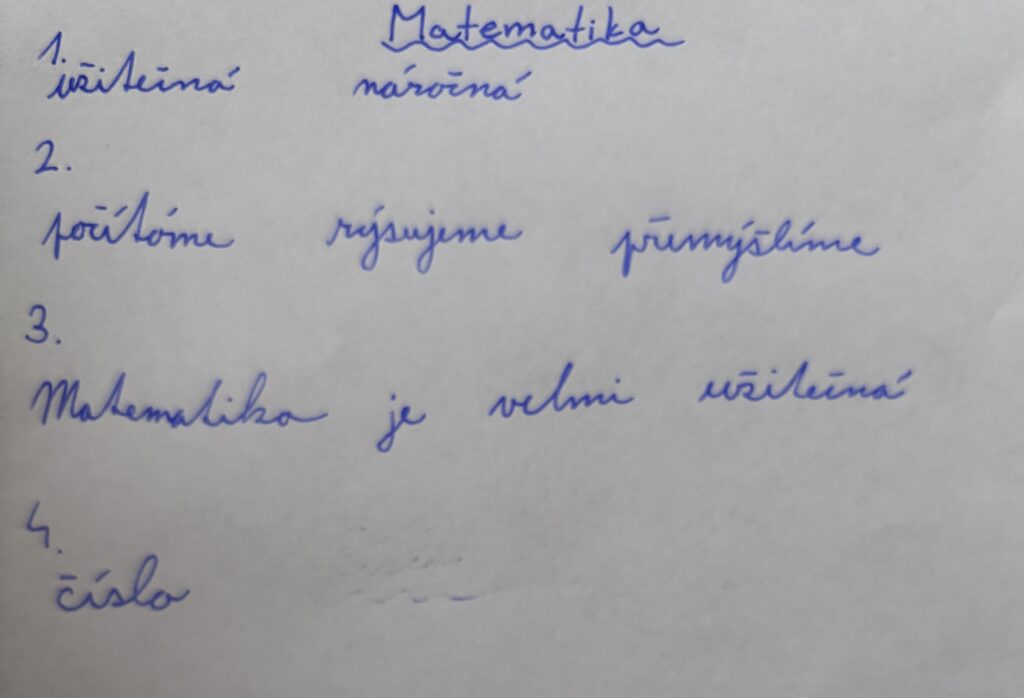 Matematika
1.
užitečná náročná
2.
počítáme rýsujeme přemýšlíme
3.
Matematika je velmi užitečná
4.
číslo